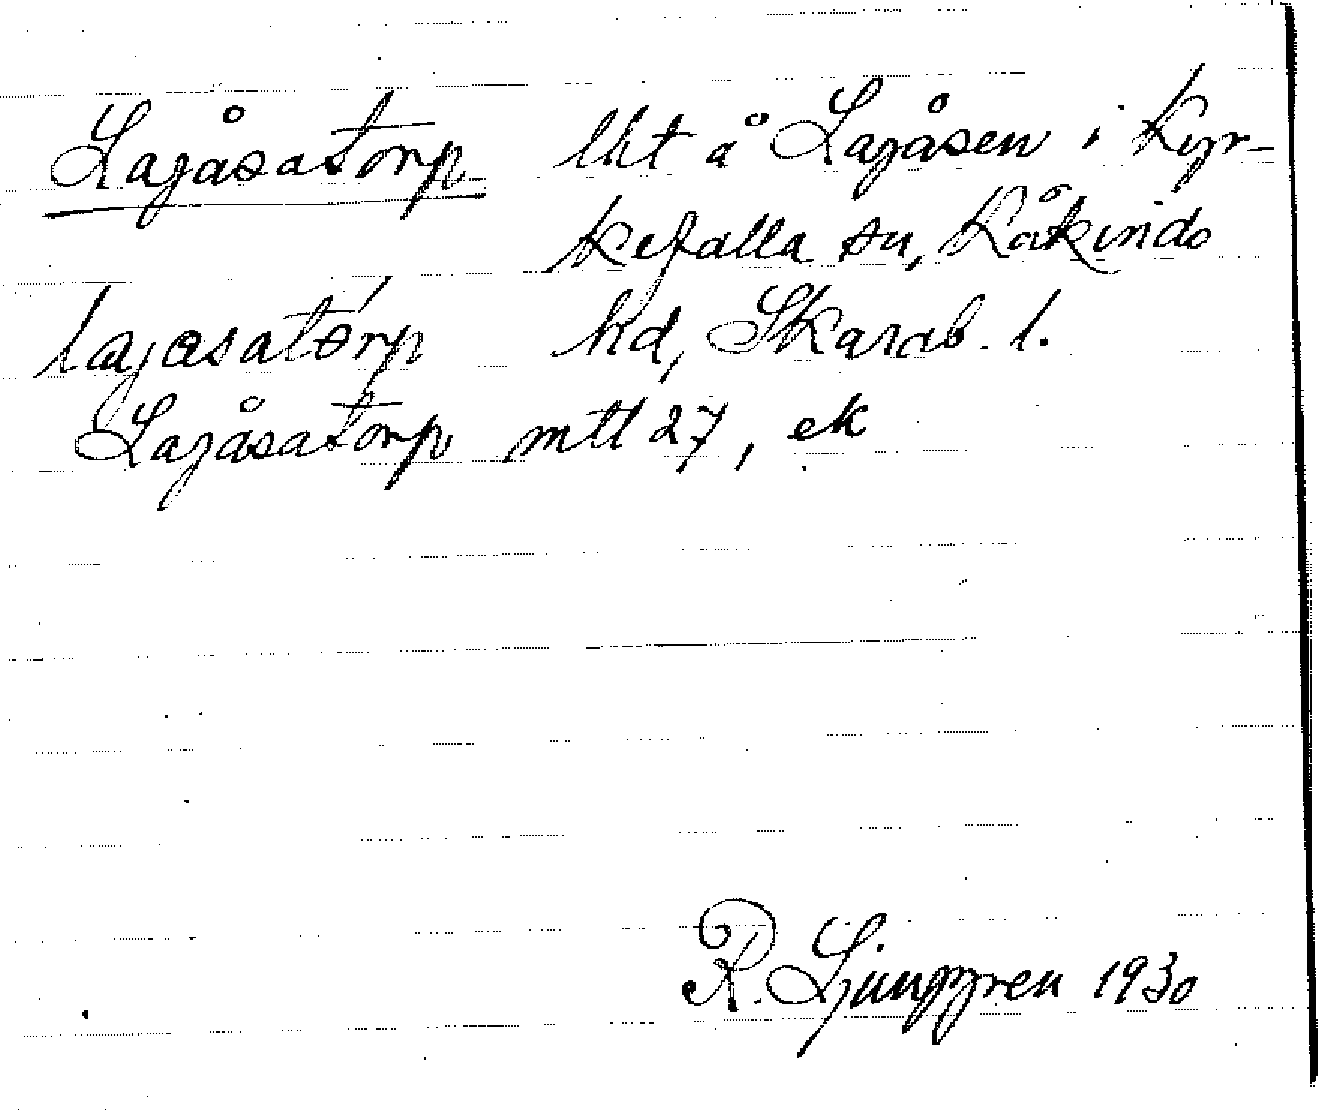 Lagåsatorp lht å Lagåsen i Kyr-
kefalla sn, Kåkinds
lagasatòrp hd, Skarab. l.
Lagåsatorp mtl 27, ek
R. Ljunggren 1930